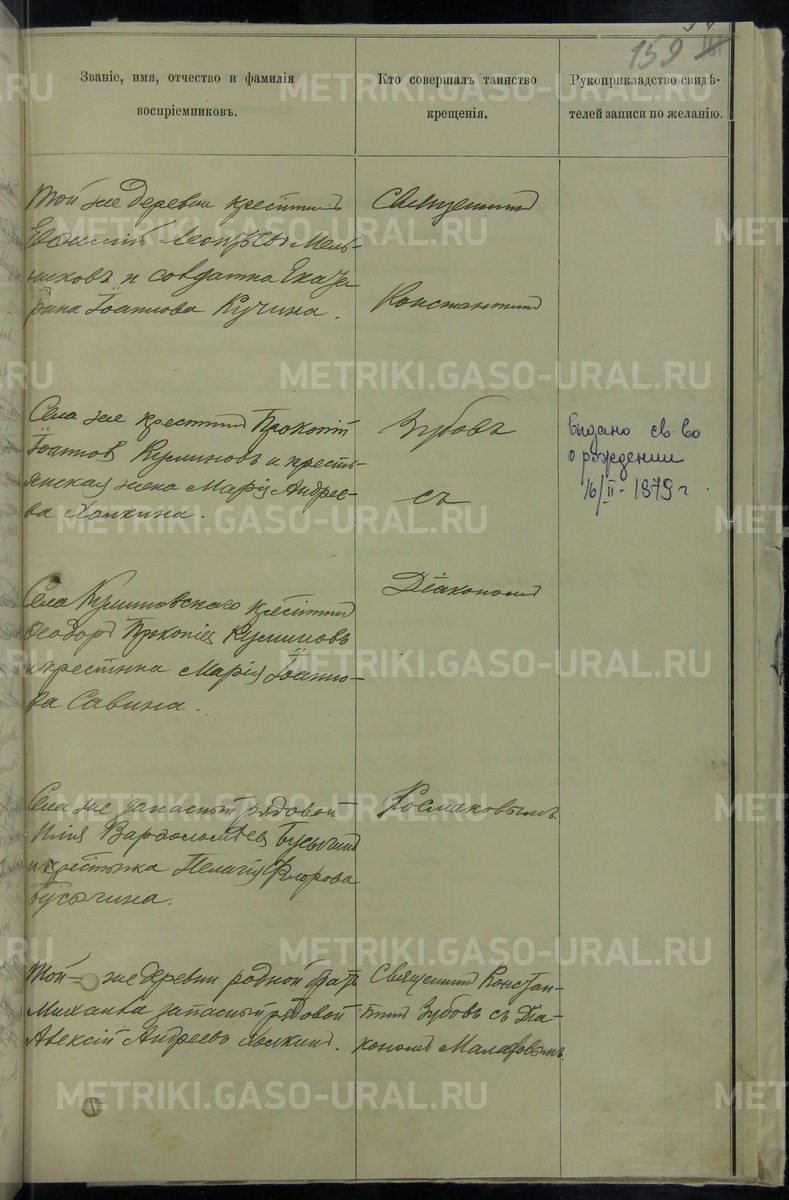 159
Званіе, имя, отчество и фамилія
воспріемниковъ.
Кто совершалъ таинство
крещенія.
Рукоприкладство свидѣ-
телей записи по желанію.
Той же деревни крестьянинъ
Мель-
никовъ и солдатка Екате
рина Іоаннова Кучина.
Священникъ
Константинъ
Села же крестьян Прокопій
Іоаннов и кресть-
янская жена Марія Андрее-
ва Холкина.
Зубовъ
съ
Выдано св-во
о рождении
16/II-1979 г
Села крестьян
Ѳеодоръ Прокопіев
и крестьянка Марія Іоанно-
ва Савина.
Діакономъ
Села же запасный рядовой
Илія Варѳоломеев Бусыгинъ
и крестьянка Пелагія Флорова
Бусыгина.
Космаковымъ.
Той-же деревни родной братъ
Михаила запасный рядовой
Алексій Андреевъ Холкинъ.
Священник Констан-
тинъ Зубовъ съ Діа-
кономъ
METRIKI.GASO-URAL.RU